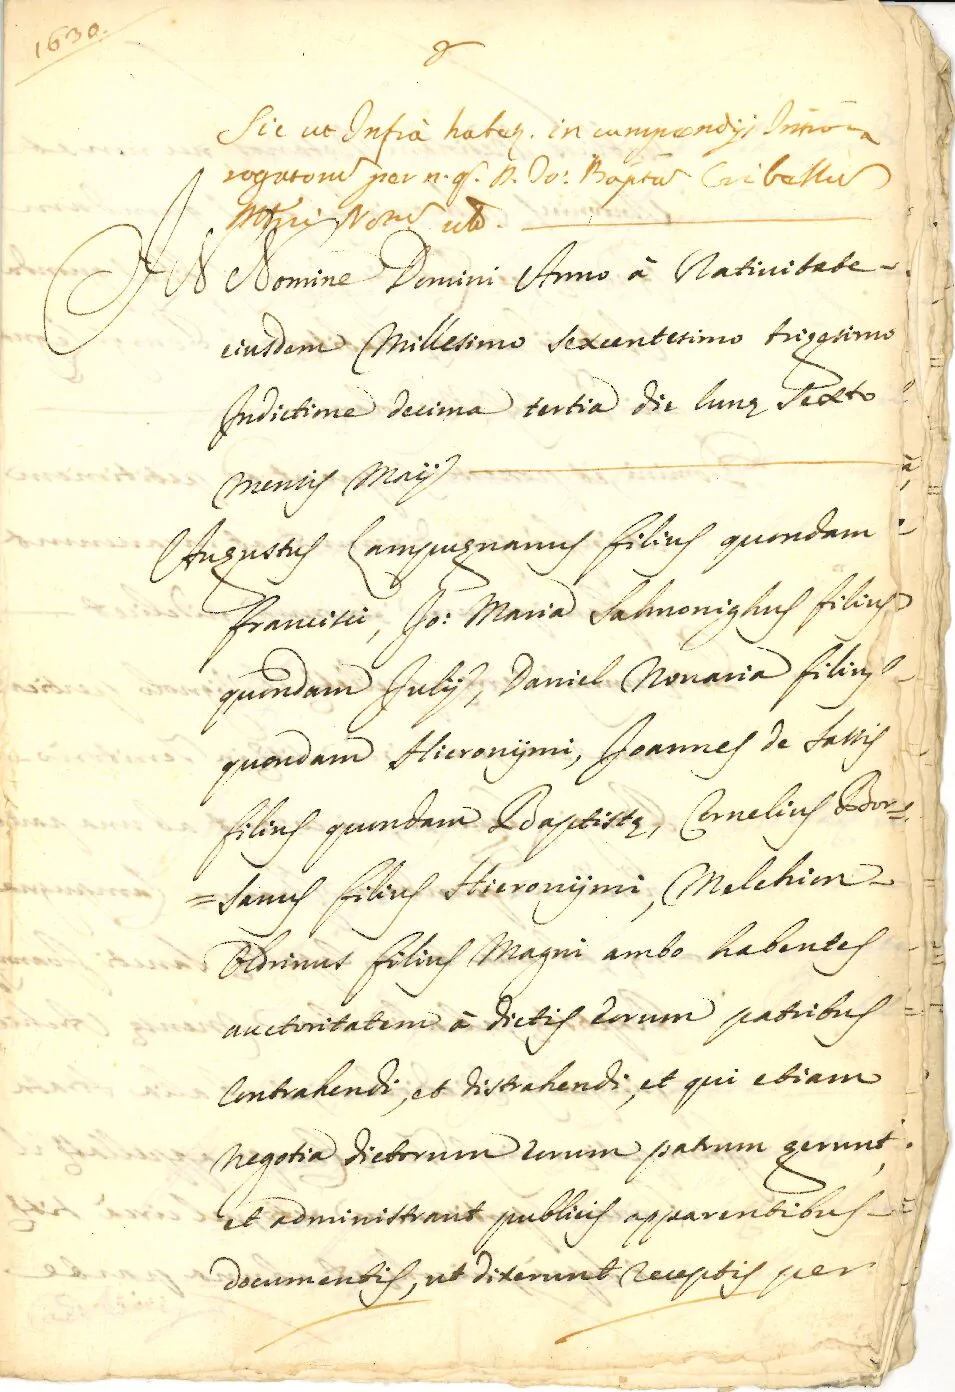 1630.
Sic ut Infrà habet. in
rogatorio per n. q. D. Jo: Bapta Cribellus
IN Nomine Domini Anno à Natiuitate
eiusdem Millesimo sexcentesimo trigesimo
Indictione decima tertia die lunę sexto
mensis Maij
Augustus Campugnanus filius quondam
Francisci, Jo: Maria Salmonighus filius
quondam Julij, Daniel Nouaria filius
quondam Hieronijmi, Joannes de Sassis
filius quondam Baptistę, Cornelius Bor=
=sanus filius Hieronijmi, Melchion
Oldrinus filius Magni ambo habentes
auctoritatem à dictis eorum patribus
contrahendi, et distrahendi, et qui etiam
negotia dictorum eorum patrum gerunt,
et administrant publicis apparentibus
documentis, ut dixerunt receptis per